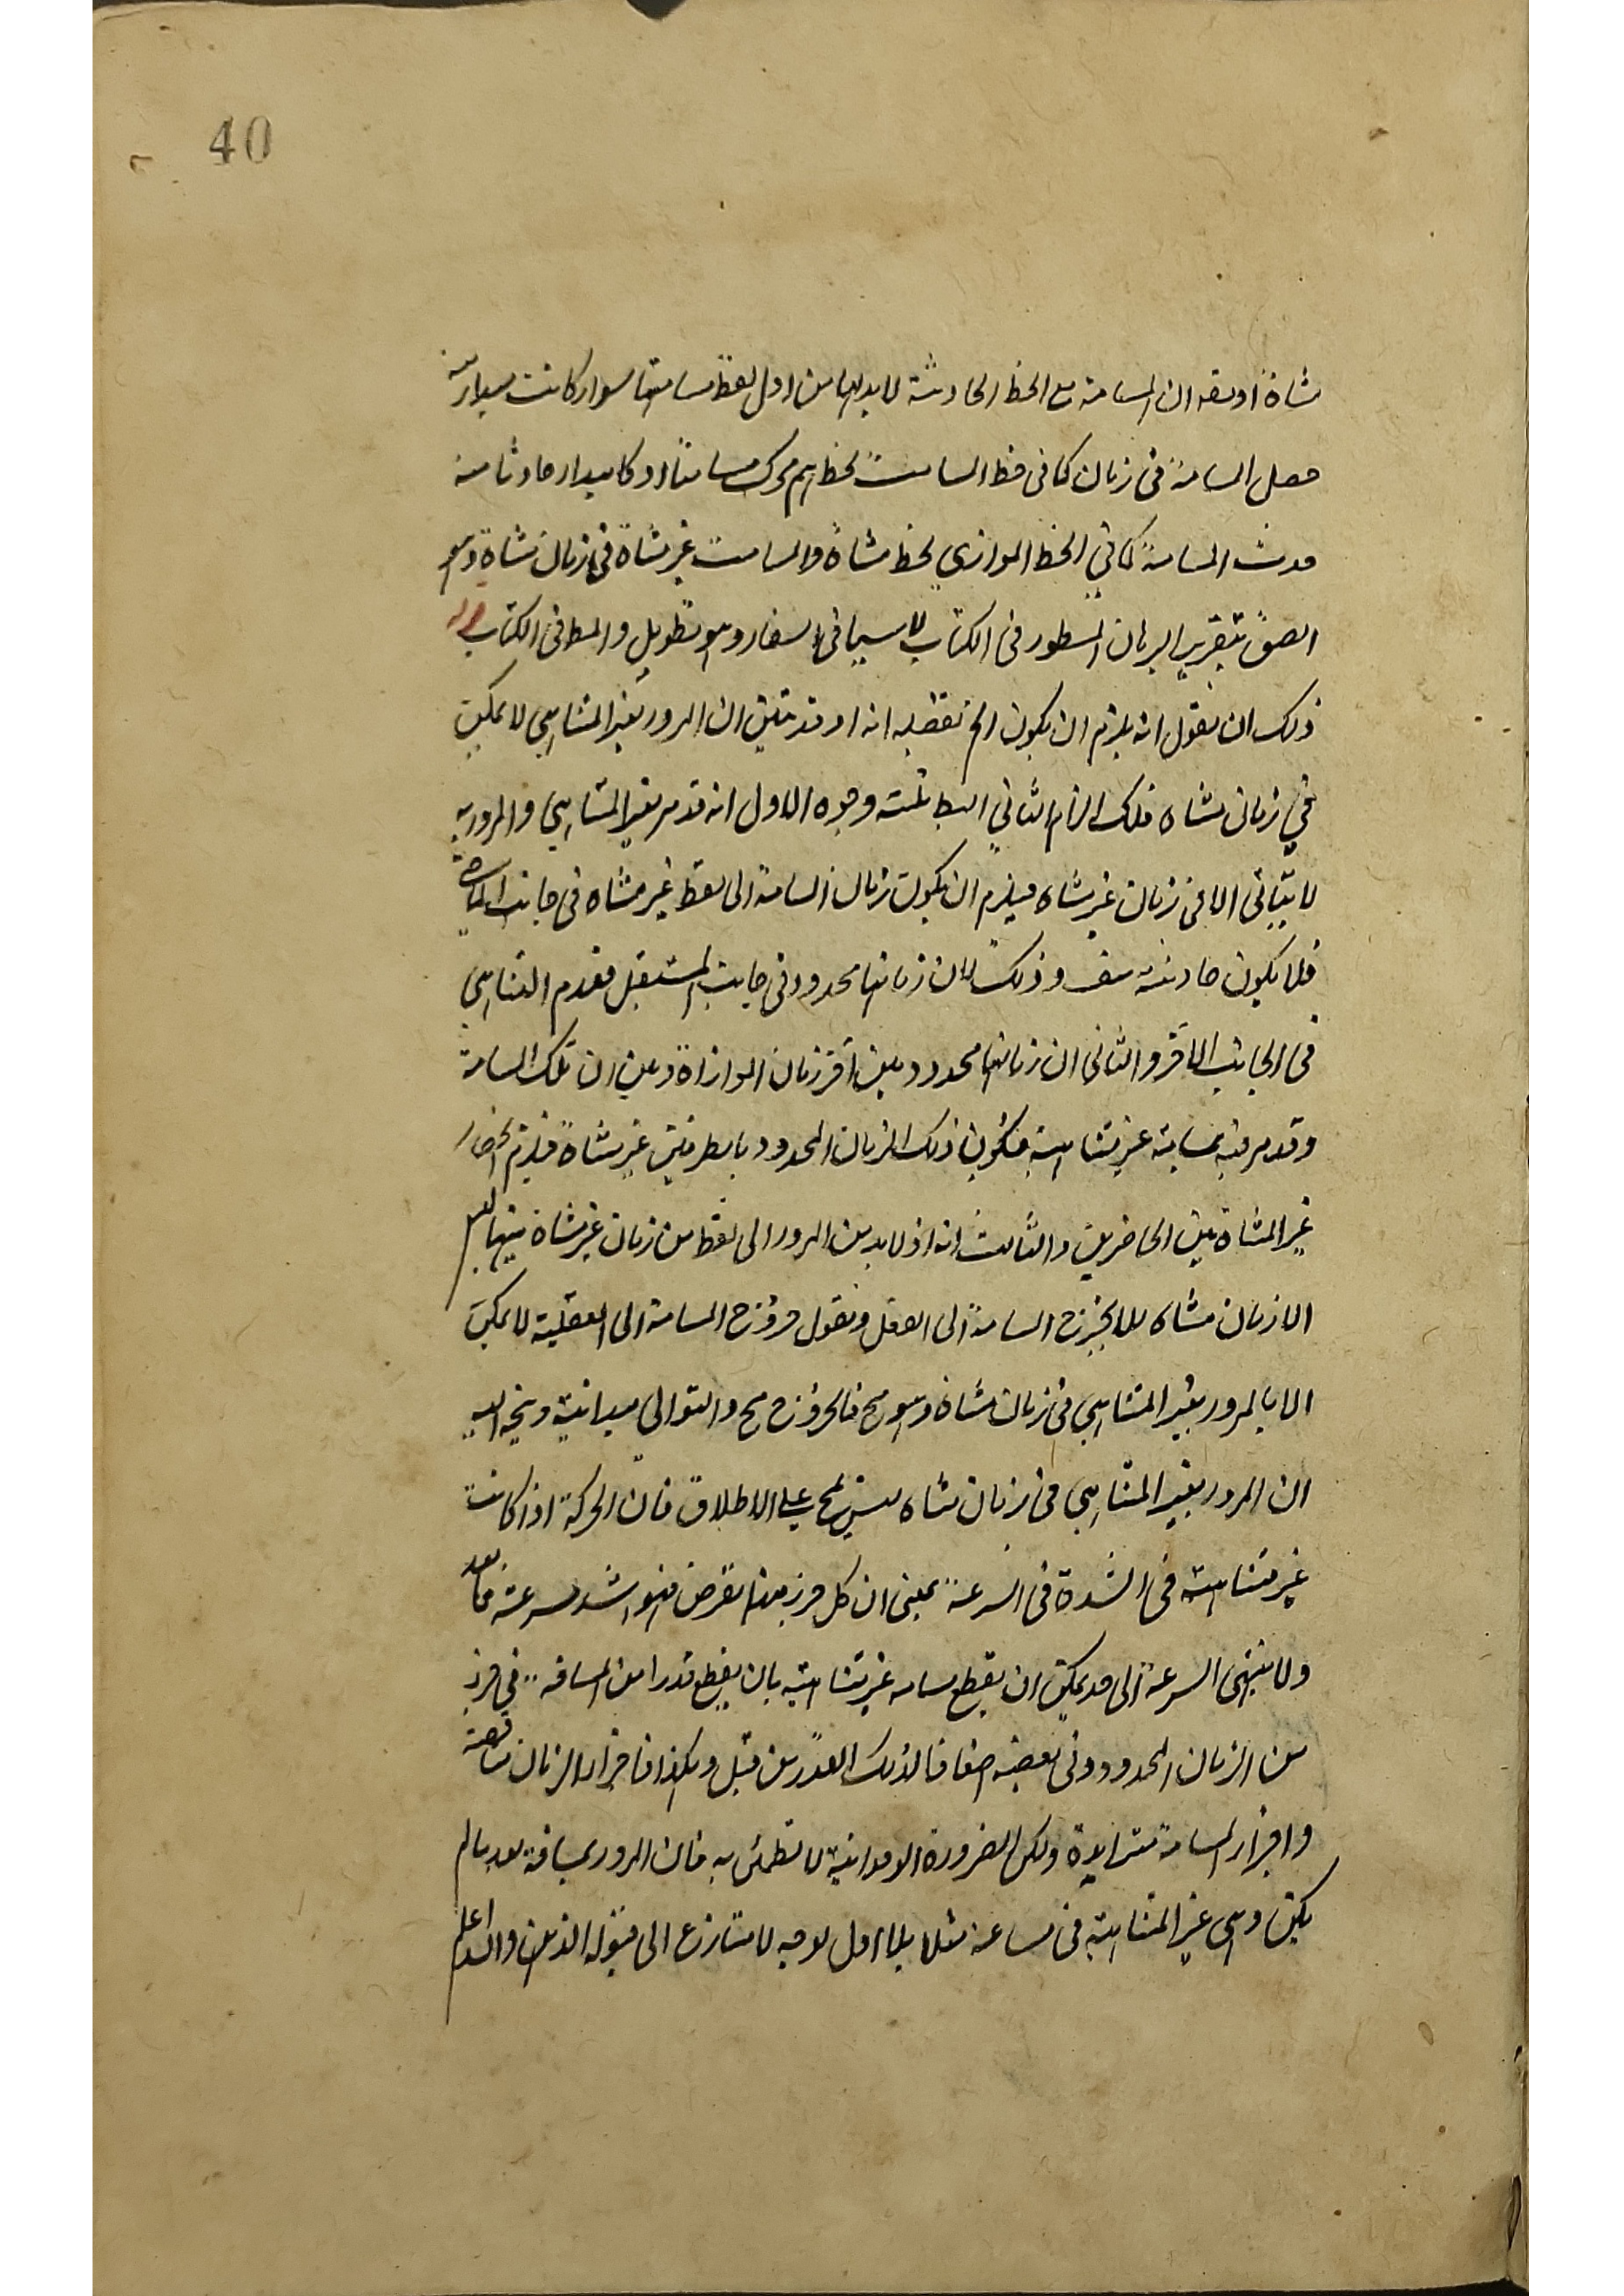 40
متناه او نقول ان المسامتة مع الخط الحادثة لا بد لها من اول نقطة مسامتها سواء كانت بمبدا منه
حصل المسامتة فى زمان كما فى خط المسامت لخط ثم تحرك مسامتا او كا مبدا حادثا منه
حدث المسامتة كما فى الخط الموازى لخط متناه والمسامت غير متناه فى زمان متناه وهو
الصق بتقرير البرهان المسطور فى الكتاب لا سيما فى الاسفار وهو تطويل والمط فى الكتاب
ذلك ان نقول انه يلزم ان يكون الخ تفصيله انه اذ قد تبين ان المرور بغير المتناهي لا يمكن
في زمان متناه فلك الزام الثاني البط بثلثة وجوه الاول انه قد مر بغير المتناهي والمرور به
لا يتاتى الا فى زمان غير متناه فيلزم ان يكون زمان المسامتة الى نقطة غير متناه فى جانب الماضى
فلا يكون حادثة هف وذلك لان زمانها محدود فى جانب المستقبل فعدم التناهي
فى الجانب الاخر والثانى ان زمانها محدود بين اخر زمان الموازاة وبين ان تلك المسامتة
وقد مر فيه بمسامتة غير متناهية فيكون ذلك الزمان المحدود بالطرفين غير متناه فيلزم انحصار
غير المتناه بين الحاضرين والثالث انه اذ لا بد من المرور الى نقطة من زمان غير متناه وليس
الا زمان متناه فلا يخرج المسامتة الى الفعل ونقول خروج المسامتة الى الفعلية لا يمكن
الا بالمرور بغير المتناهي فى زمان متناه وهو مح فالخروج مح والتوالى مبائنة ويتجه اليه
ان المرور بغير المتناهي فى زمان متناه ليس بمح على الاطلاق فان الحركة اذا كانت
غير متناهية فى الشدة فى السرعة بمعنى ان كل جزء منها نفرض فهو اشد سرعة مما بعد
ولا ينتهى السرعة الى حد يمكن ان يقطع مسافة غير متناهية بان يقطع قدرا من المسافة فى جزء
من الزمان المحدود وفى نصفه اضعافا لذلك القدر من قبل وهكذا فاجزاء الزمان متناقصة
واجزاء المسافة متزايدة ولكن الضرورة الوجدانية لا تطمئن به فان المرور بمسافة بعد ما لم
يكن وهي غير المتناهية فى ساعة مثلا بلا اول بوجه لا يتنازع الى قبوله الذهن والله اعلم